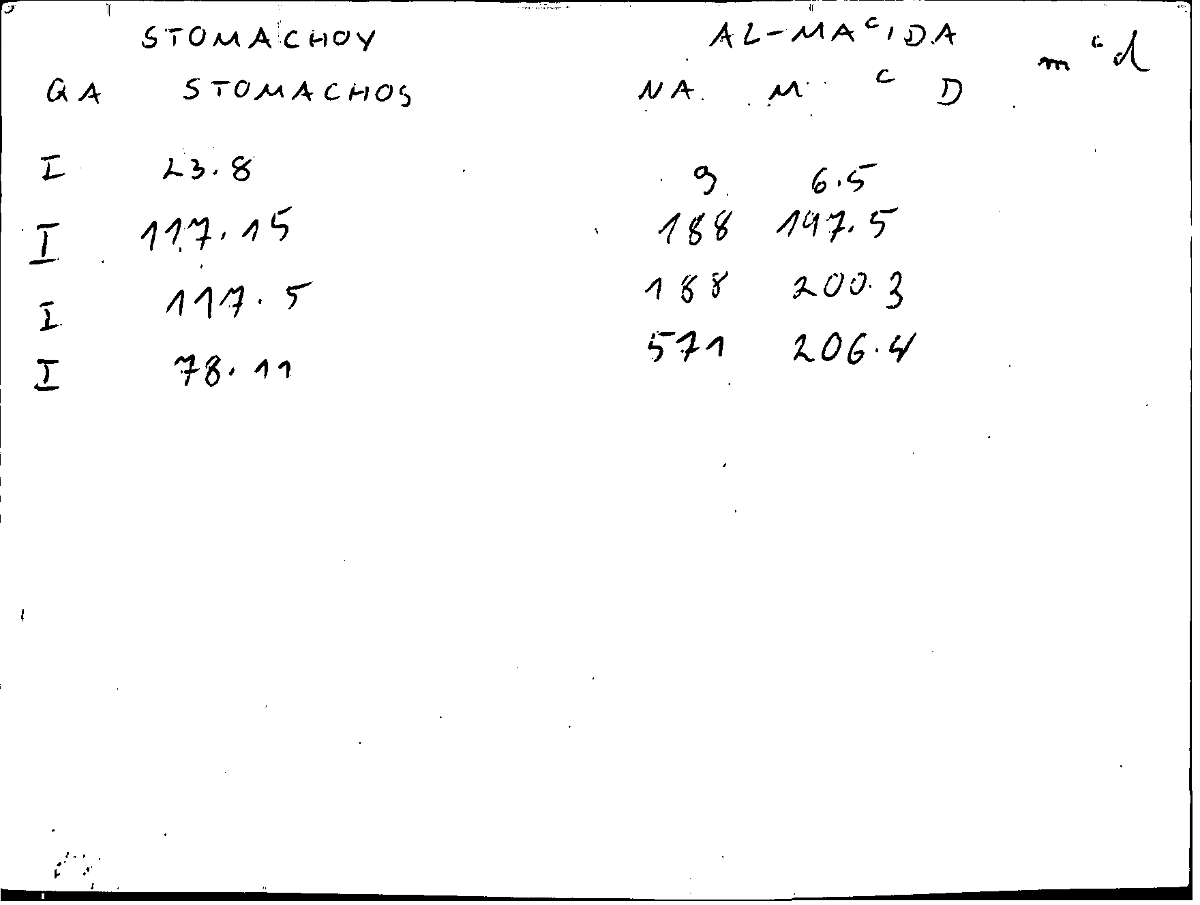 STOMACHOY AL-MAᶜIDA mᶜd
GA STOMACHOS NA. M ᶜ D
I 23.8 9 6.5
I 117.15 188 197.5
I 117.5 188 200.3
I 78.11 571 206.4